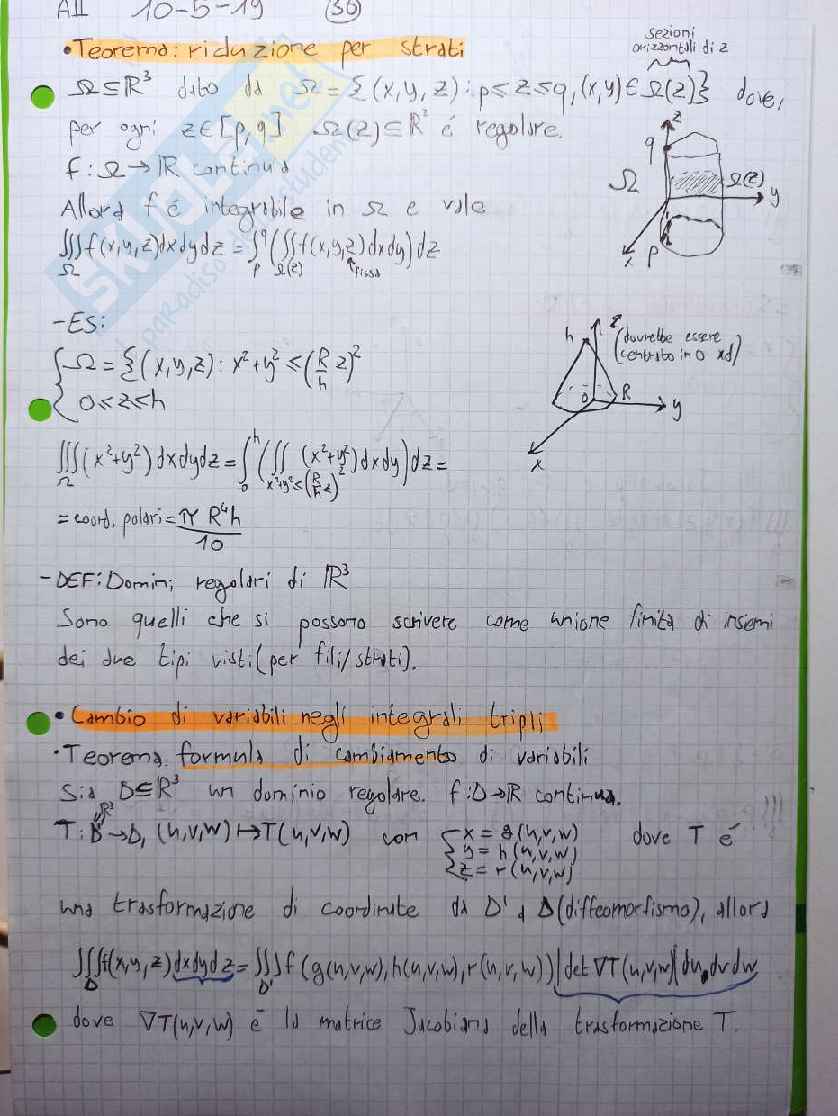 AII 10-5-19 (36)
sezioni
orizzontali di z
• Teorema: riduzione per strati
Ω⊆ℝ³ dato da Ω = {(x,y,z): p≤z≤q, (x,y)∈Ω(z)} dove,
per ogni z∈[p,q] Ω(z)⊆ℝ² é regolare.
f: Ω→ℝ continua
Allora f é integribile in Ω e vale
∭_Ω f(x,y,z)dxdydz = ∫_p^q (∬_Ω(z) f(x,y,z)dxdy)dz
fisso
z
q
Ω
Ω(z)
y
x
p
-ES:
{Ω = {(x,y,z): x²+y² ≤ (R/h z)²
0≤z≤h
h z (dovrebbe essere
centrato in 0 xd)
0 R
y
x
∭_Ω (x²+y²)dxdydz = ∫_0^h (∬_{x²+y²≤(R/h z)²} (x²+y²)dxdy)dz =
= coord. polari = π R⁴h / 10
- DEF: Domini regolari di ℝ³
Sono quelli che si possono scrivere come unione finita di insiemi
dei due tipi visti (per fili/strati).
• Cambio di variabili negli integrali tripli
• Teorema. formula di cambiamento di variabili
Sia D⊆ℝ³ un dominio regolare. f: D→ℝ continua.
ℝ³
T: D'→D, (u,v,w)↦T(u,v,w) con {x = g(u,v,w) dove T é
y = h(u,v,w)
z = r(u,v,w)
una trasformazione di coordinate da D' a D (diffeomorfismo), allora
∭_D f(x,y,z)dxdydz = ∭_D' f(g(u,v,w),h(u,v,w),r(u,v,w))|det∇T(u,v,w)|du dv dw
dove ∇T(u,v,w) é la matrice Jacobiana della trasformazione T.